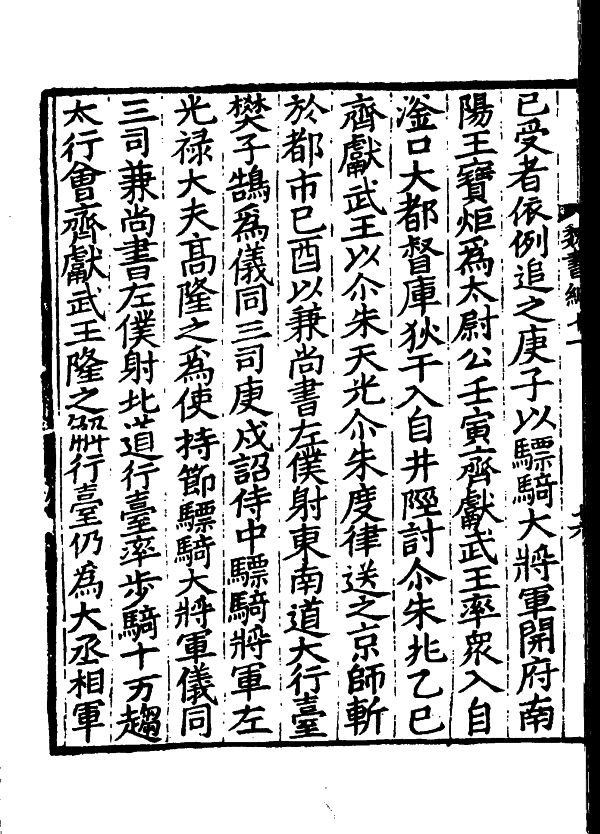 已受者依例追之庚子以驃騎大將軍開府南
陽王寶炬爲太尉公壬寅齊獻武王率衆入自
滏口大都督庫狄干入自井陘討尒朱兆乙巳
齊獻武王以尒朱天光尒朱度律送之京師斬
於都市己酉以兼尚書左僕射東南道大行臺
樊子鵠爲儀同三司庚戌詔侍中驃騎將軍左
光禄大夫高隆之爲使持節驃騎大將軍儀同
三司兼尚書左僕射北道行臺率步騎十万趨
太行會齊獻武王隆之解行臺仍爲大丞相軍
魏書紀十一